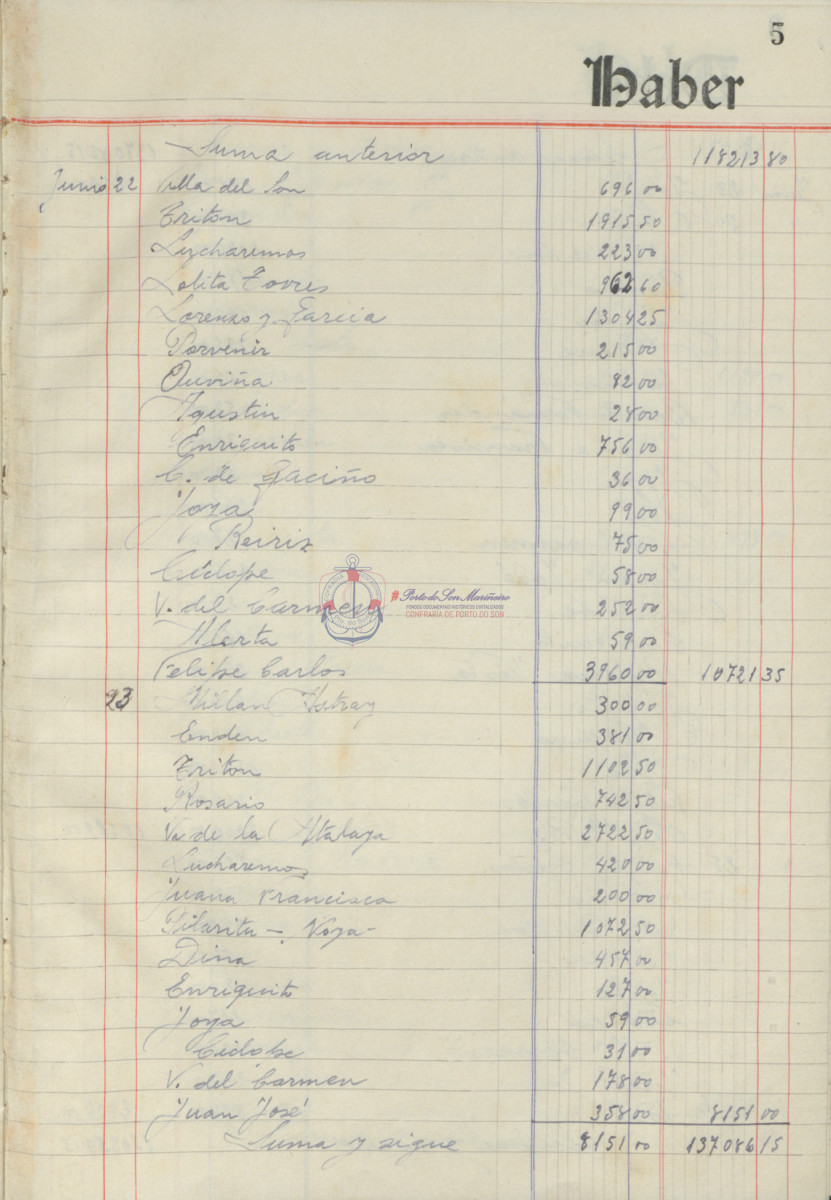 5
Haber
Suma anterior 118213 80
Junio 22 Villa del Son 696 00
Triton 1915 50
Lucharemos 223 00
Lolita Torres 962 60
Lorenzo y Garcia 1304 25
Porvenir 215 00
Ouviña 82 00
Agustin 28 00
Enriquito 756 00
C. de Gaciño 36 00
Joya 99 00
Reiriz 75 00
Ciclope 58 00
V. del Carmen 252 00
Alerta 59 00
Felipe Carlos 3960 00 10721 35
23 Millan Astray 300 00
Enden 381 00
Triton 1102 50
Rosario 742 50
Va de la Atalaya 2722 50
Lucharemos 420 00
Juana Francisca 200 00
Pilarita - Noya - 1072 50
Dina 457 00
Enriquito 127 00
Joya 59 00
Ciclope 31 00
V. del Carmen 178 00
Juan José 358 00 8151 00
Suma y sigue 8151 00 137086 15
#Porto do Son Mariñeiro
FONDOS DOCUMENTAIS HISTÓRICOS DIXITALIZADOS
CONFRARÍA DE PORTO DO SON